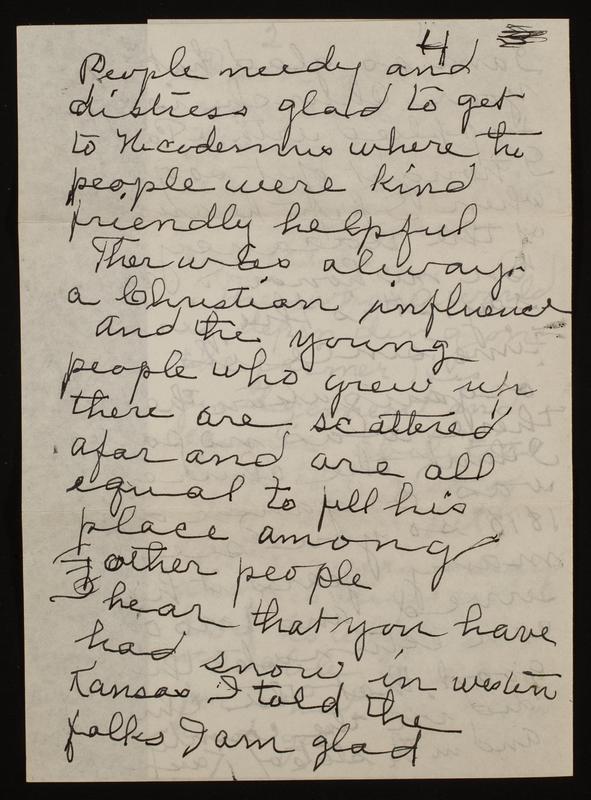 4
People needy and
distress glad to get
to Nicodemus where the
people were kind
friendly helpful
Ther was always
a Christian influence
and the young
people who grew up
there are scattered
afar and are all
equal to fill his
place among
other people
I hear that you have
had snow in western
Kansas I told the
folks I am glad